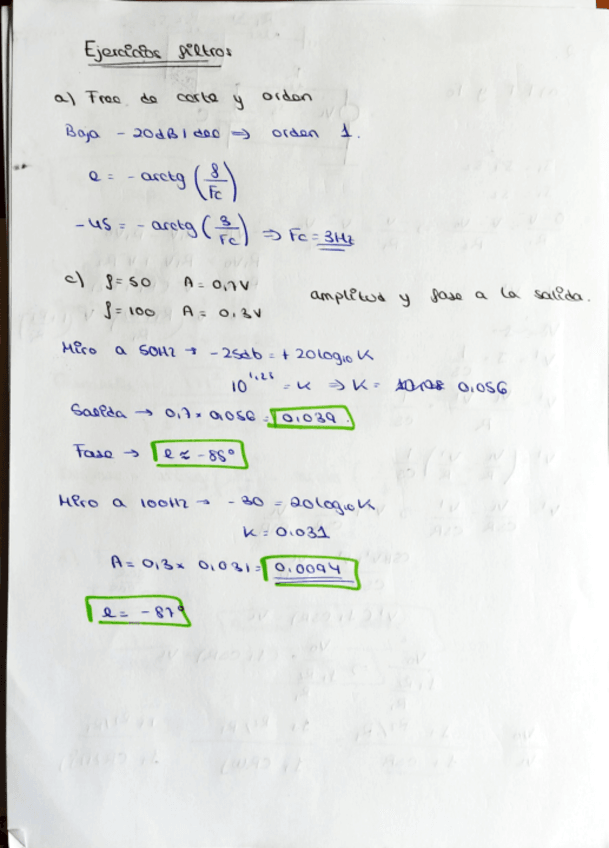 Ejercicios filtros
a) Frec de corte y orden
Baja - 20dB/dec ⇒ orden 1.
φ = - arctg (f/Fc)
-45 = - arctg (3/Fc) ⇒ Fc = 3Hz
c) f=50 A = 0,7V
f=100 A = 0,3V
amplitud y fase a la salida.
Miro a 50Hz → -25db = +20log10 K
10^-1,25 = K ⇒ K = 0,056
Salida → 0,7 × 0,056 = 0,039.
Fase → φ ≈ -85°
Miro a 100Hz → -30 = 20log10 K
K = 0,031
A = 0,3 × 0,031 = 0,0094
φ = -87°